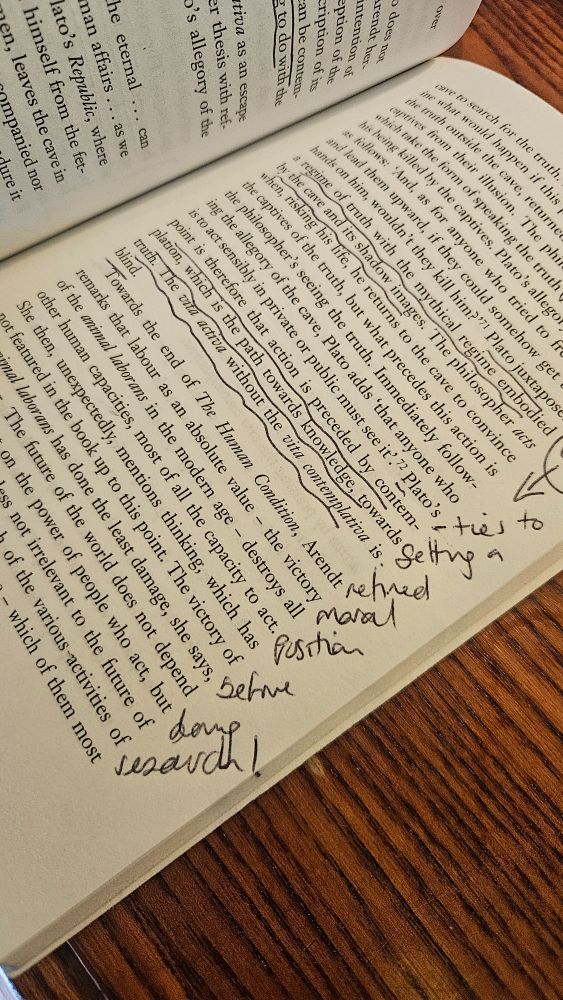 over
o does not
Arendt her.
intention of
eption of
cription of its
can be contem-
g to do with the
tiva as an escape
er thesis with ref-
o's allegory of the
the eternal … can
man affairs … as we
lato's Republic, where
himself from the fet-
men, leaves the cave in
ccompanied nor
dure it
care to search for the truth.
ine what would happen if this
the truth outside the cave, returne
captives from their illusion. The phil
which take the form of speaking the truth
his being killed by the captives. Plato's allego
as follows: 'And, as for anyone who tried to fre
and lead them upward, if they could somehow get
hands on him, wouldn't they kill him?'71 Plato juxtapose
a regime of truth with the mythical regime embodied
by the cave and its shadow images. The philosopher acts
when, risking his life, he returns to the cave to convince
the captives of the truth, but what precedes this action is
the philosopher's seeing the truth. Immediately follow-
ing the allegory of the cave, Plato adds 'that anyone who
is to act sensibly in private or public must see it'.72 Plato's
point is therefore that action is preceded by contem-
plation, which is the path towards knowledge, towards
truth. The vita activa without the vita contemplativa is
blind.
Towards the end of The Human Condition, Arendt
remarks that labour as an absolute value – the victory
of the animal laborans in the modern age – destroys all
other human capacities, most of all the capacity to act.
She then, unexpectedly, mentions thinking, which has
not featured in the book up to this point. The victory of
nimal laborans has done the least damage, she says,
The future of the world does not depend
on the power of people who act, but
less not irrelevant to the future of
h of the various activities of
– which of them most
- ties to
setting a
refined
moral
position
before
doing
research!